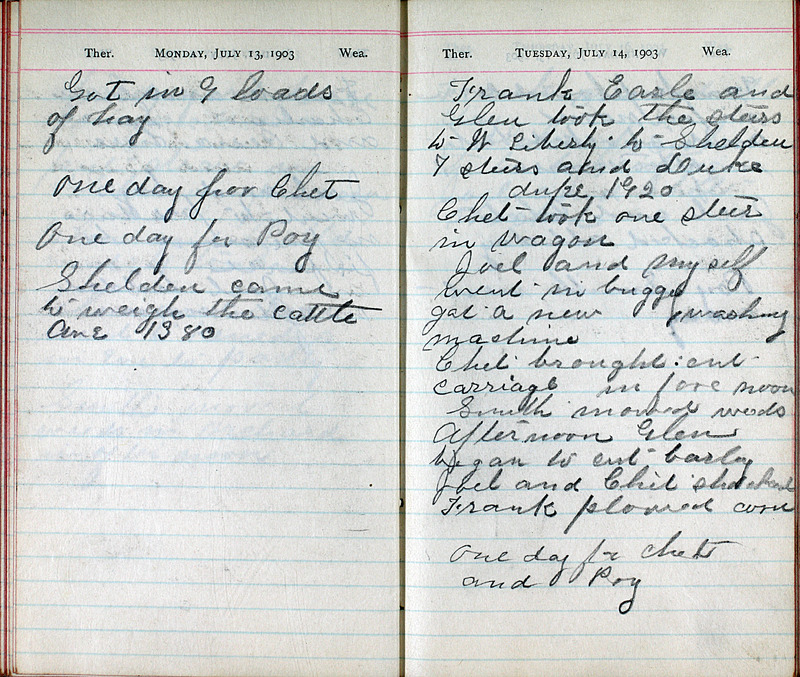 Ther. MONDAY, JULY 13, 1903 Wea.
Got in 9 loads
of hay
One day for Chet
One day for Roy
Shelden came
to weigh the cattle
ave 1380
Ther. TUESDAY, JULY 14, 1903 Wea.
Frank Earle and
Glen took the steers
to W Liberty to Shelden
7 steers and Duke
duke 1920
Chet took one steer
in wagon
Joel and myself
went in buggy
got a new washing
machine
Chet brought out
carriage in fore noon
Smith mowed weeds
Afternoon Glen
began to cut barley
Joel and Chet shocked
Frank plowed corn
One day for Chet
and Roy